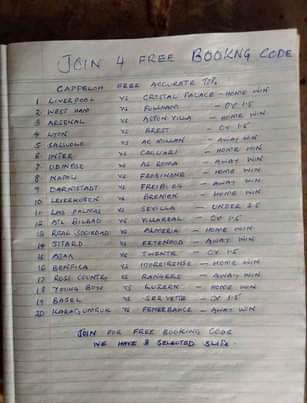 JOIN 4 FREE BOOKNG CODE
FREE ACCURATE TIPS
1 LIVERPOOL VS CRYSTAL PALACE - HOME WIN
2 WEST HAM VS FULHAM - OV 1.5
3 ARSENAL VS ASTON VILLA - HOME WIN
4 LYON VS BREST - OV 1.5
5 SASSUOLO VS AC MILLAN - AWAY WIN
6 INTER VS CAGLIARI - HOME WIN
7 UDINESE VS AS ROMA - AWAY WIN
8 NAPOLI VS FROSINONE - HOME WIN
9 DARMSTADT VS FREIBURG - AWAY WIN
10 LEVERKUSEN VS BREMEN - HOME WIN
11 LAS PALMAS VS SEVILLA - UNDER 3.5
12 ATL BILBAO VS VILLAREAL - OV 1.5
13 REAL SOCIEDAD VS ALMERIA - HOME WIN
14 SITARD VS FEYENOOD - AWAY WIN
15 AJAX VS TWENTE - OV 1.5
16 BENFICA VS MOREIRENSE - HOME WIN
17 ROSS COUNTRY VS RANGERS - AWAY WIN
18 YOUNG BOYS VS LUZERN - HOME WIN
19 BASEL VS SERVETTE - OV 1.5
20 KARAGUMRUK VS FENERBAHCE - AWAY WIN
JOIN FOR FREE BOOKING CODE
WE HAVE 8 SELECTED SLIPS